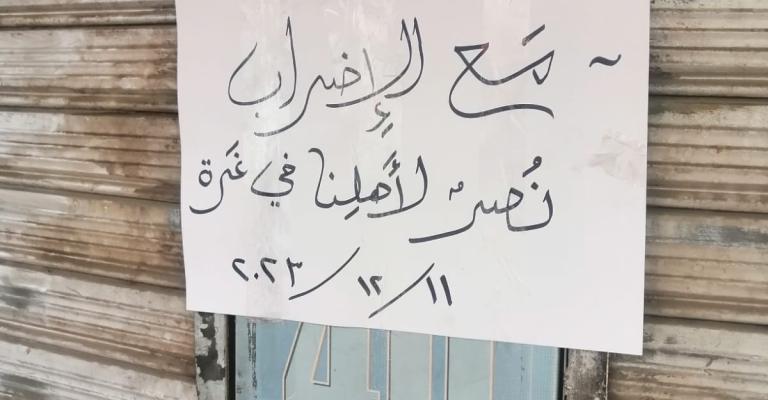 ~ مَع الإِضراب
نُصرٌ لأَهلِنا في غَزة
١١/١٢/٢٠٢٣